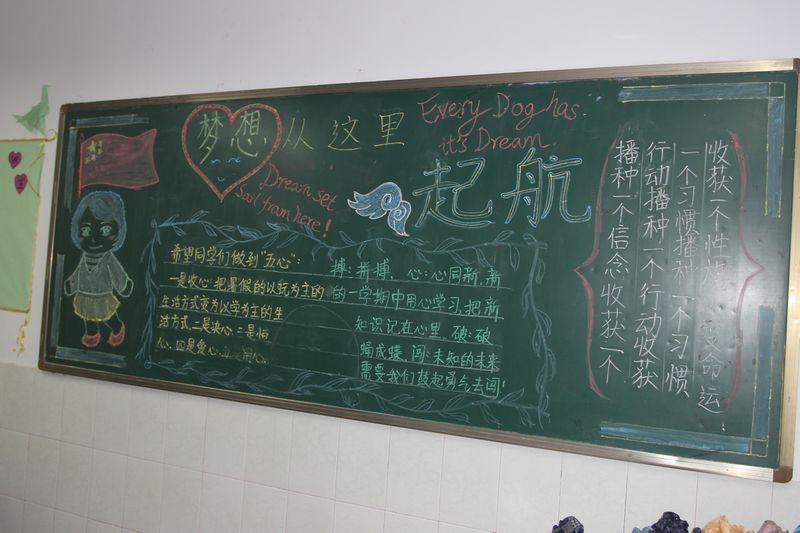 梦想从这里
起航
Every Dog has
it's Dream.
Dream set
Sail from here!
希望同学们做到"五心":
一是收心:把暑假的以玩为主的
生活方式变为以学为主的生
活方式.二是决心.三是恒
心.四是爱心.五 用心.
搏:拼搏、心:心同新,新
的一学期中用心学习,把新
知识记在心里,破:破
蛹成蝶,闯:未知的未来
需要我们鼓起勇气去闯!
播种一个信念收获一个
行动播种一个行动收获
一个习惯播种一个习惯
收获一个性格 命运